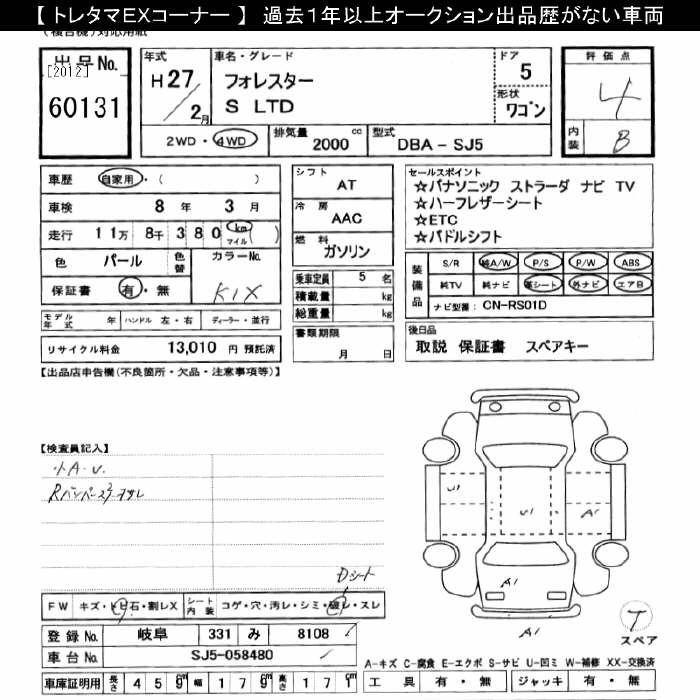 【 トレタマEXコーナー 】 過去1年以上オークション出品歴がない車両
(複合機)対応用紙
出品No.
[2012]
60131
年式
H27/2月
車名・グレード
フォレスター
S LTD
ドア
5
形状
ワゴン
2WD・4WD
排気量 2000 cc
型式 DBA-SJ5
評価点
4
内装 B
車歴 自家用・( )
車検 8年 3月
走行 11万 8千 380 km マイル ( )
色 パール 色替 カラーNo.
保証書 有・無 K1X
モデル年式 年 ハンドル 左・右 ディーラー・並行
リサイクル料金 13,010 円 預託済
シフト
AT
冷房
AAC
燃料
ガソリン
乗車定員 5 名
積載量 kg
総重量 kg
書類期限
月 日
セールスポイント
☆パナソニック ストラーダ ナビ TV
☆ハーフレザーシート
☆ETC
☆パドルシフト
装備品
S/R 純A/W P/S P/W ABS
純TV 純ナビ 革シート 外ナビ エアB
ナビ型番: CN-RS01D
後日品
取説 保証書 スペアキー
【出品店申告欄(不良箇所・欠品・注意事項等)】
【検査員記入】
小A.U.
Rバンパースリ
U1
U1
A1
A1
A1
Dシート
FW キズ・トビ石・割レX シート内装 コゲ・穴・汚レ・シミ・破レ・スレ
登録No. 岐阜 331 み 8108
車台No. SJ5-058480
車庫証明用 長さ 459cm 幅 179cm 高さ 171cm
T
スペア
A-キズ C-腐食 E-エクボ S-サビ U-凹ミ W-補修 XX-交換済
工具 有・無 ジャッキ 有・無